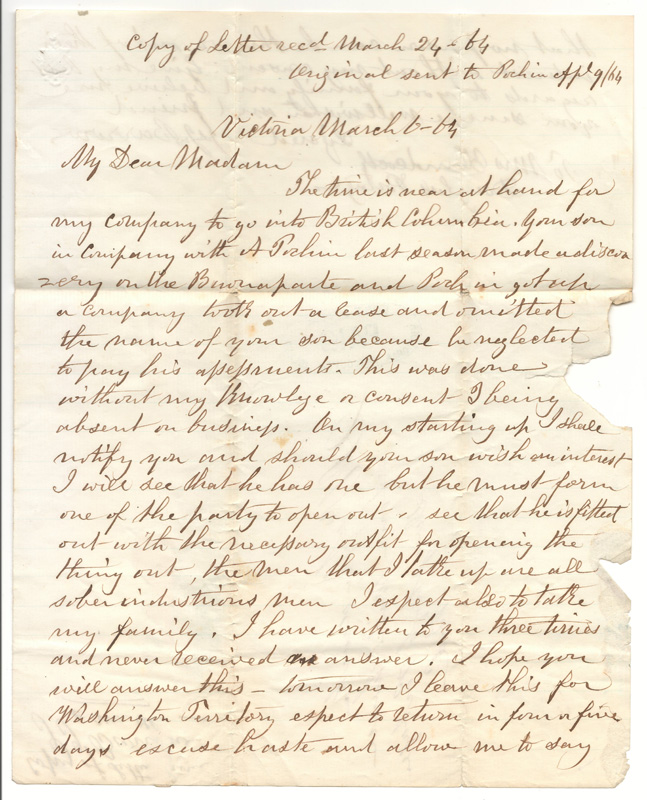 Copy of Letter recd March 24-64
Original sent to Pochin Apl 9/64
Victoria March 6-64
My Dear Madam
The time is near at hand for
my company to go into British Columbia. Your son
in company with A Pochin last season made a discov
ery on the Buonaparte and Pochin got up
a company took out a lease and omitted
the name of your son because he neglected
to pay his assessments. This was done
without my knowlege or consent I being
absent on business. On my starting up I shall
notify you and should your son wish an interest
I will see that he has one but he must form
one of the party to open out - see that he is fitted
out with the necessary outfit for opening the
thing out, the men that I take up are all
sober industrious men I expect also to take
my family. I have written to you three times
and never received an answer. I hope you
will answer this - tomorrow I leave this for
Washington Territory expect to return in four or five
days excuse haste and allow me to say